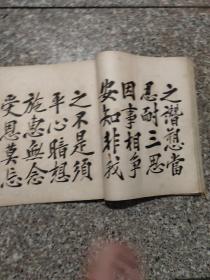 之譖愬當
忍耐三思
因事相爭
安知非我
之不是須
平心暗想
施惠無念
受恩莫忘